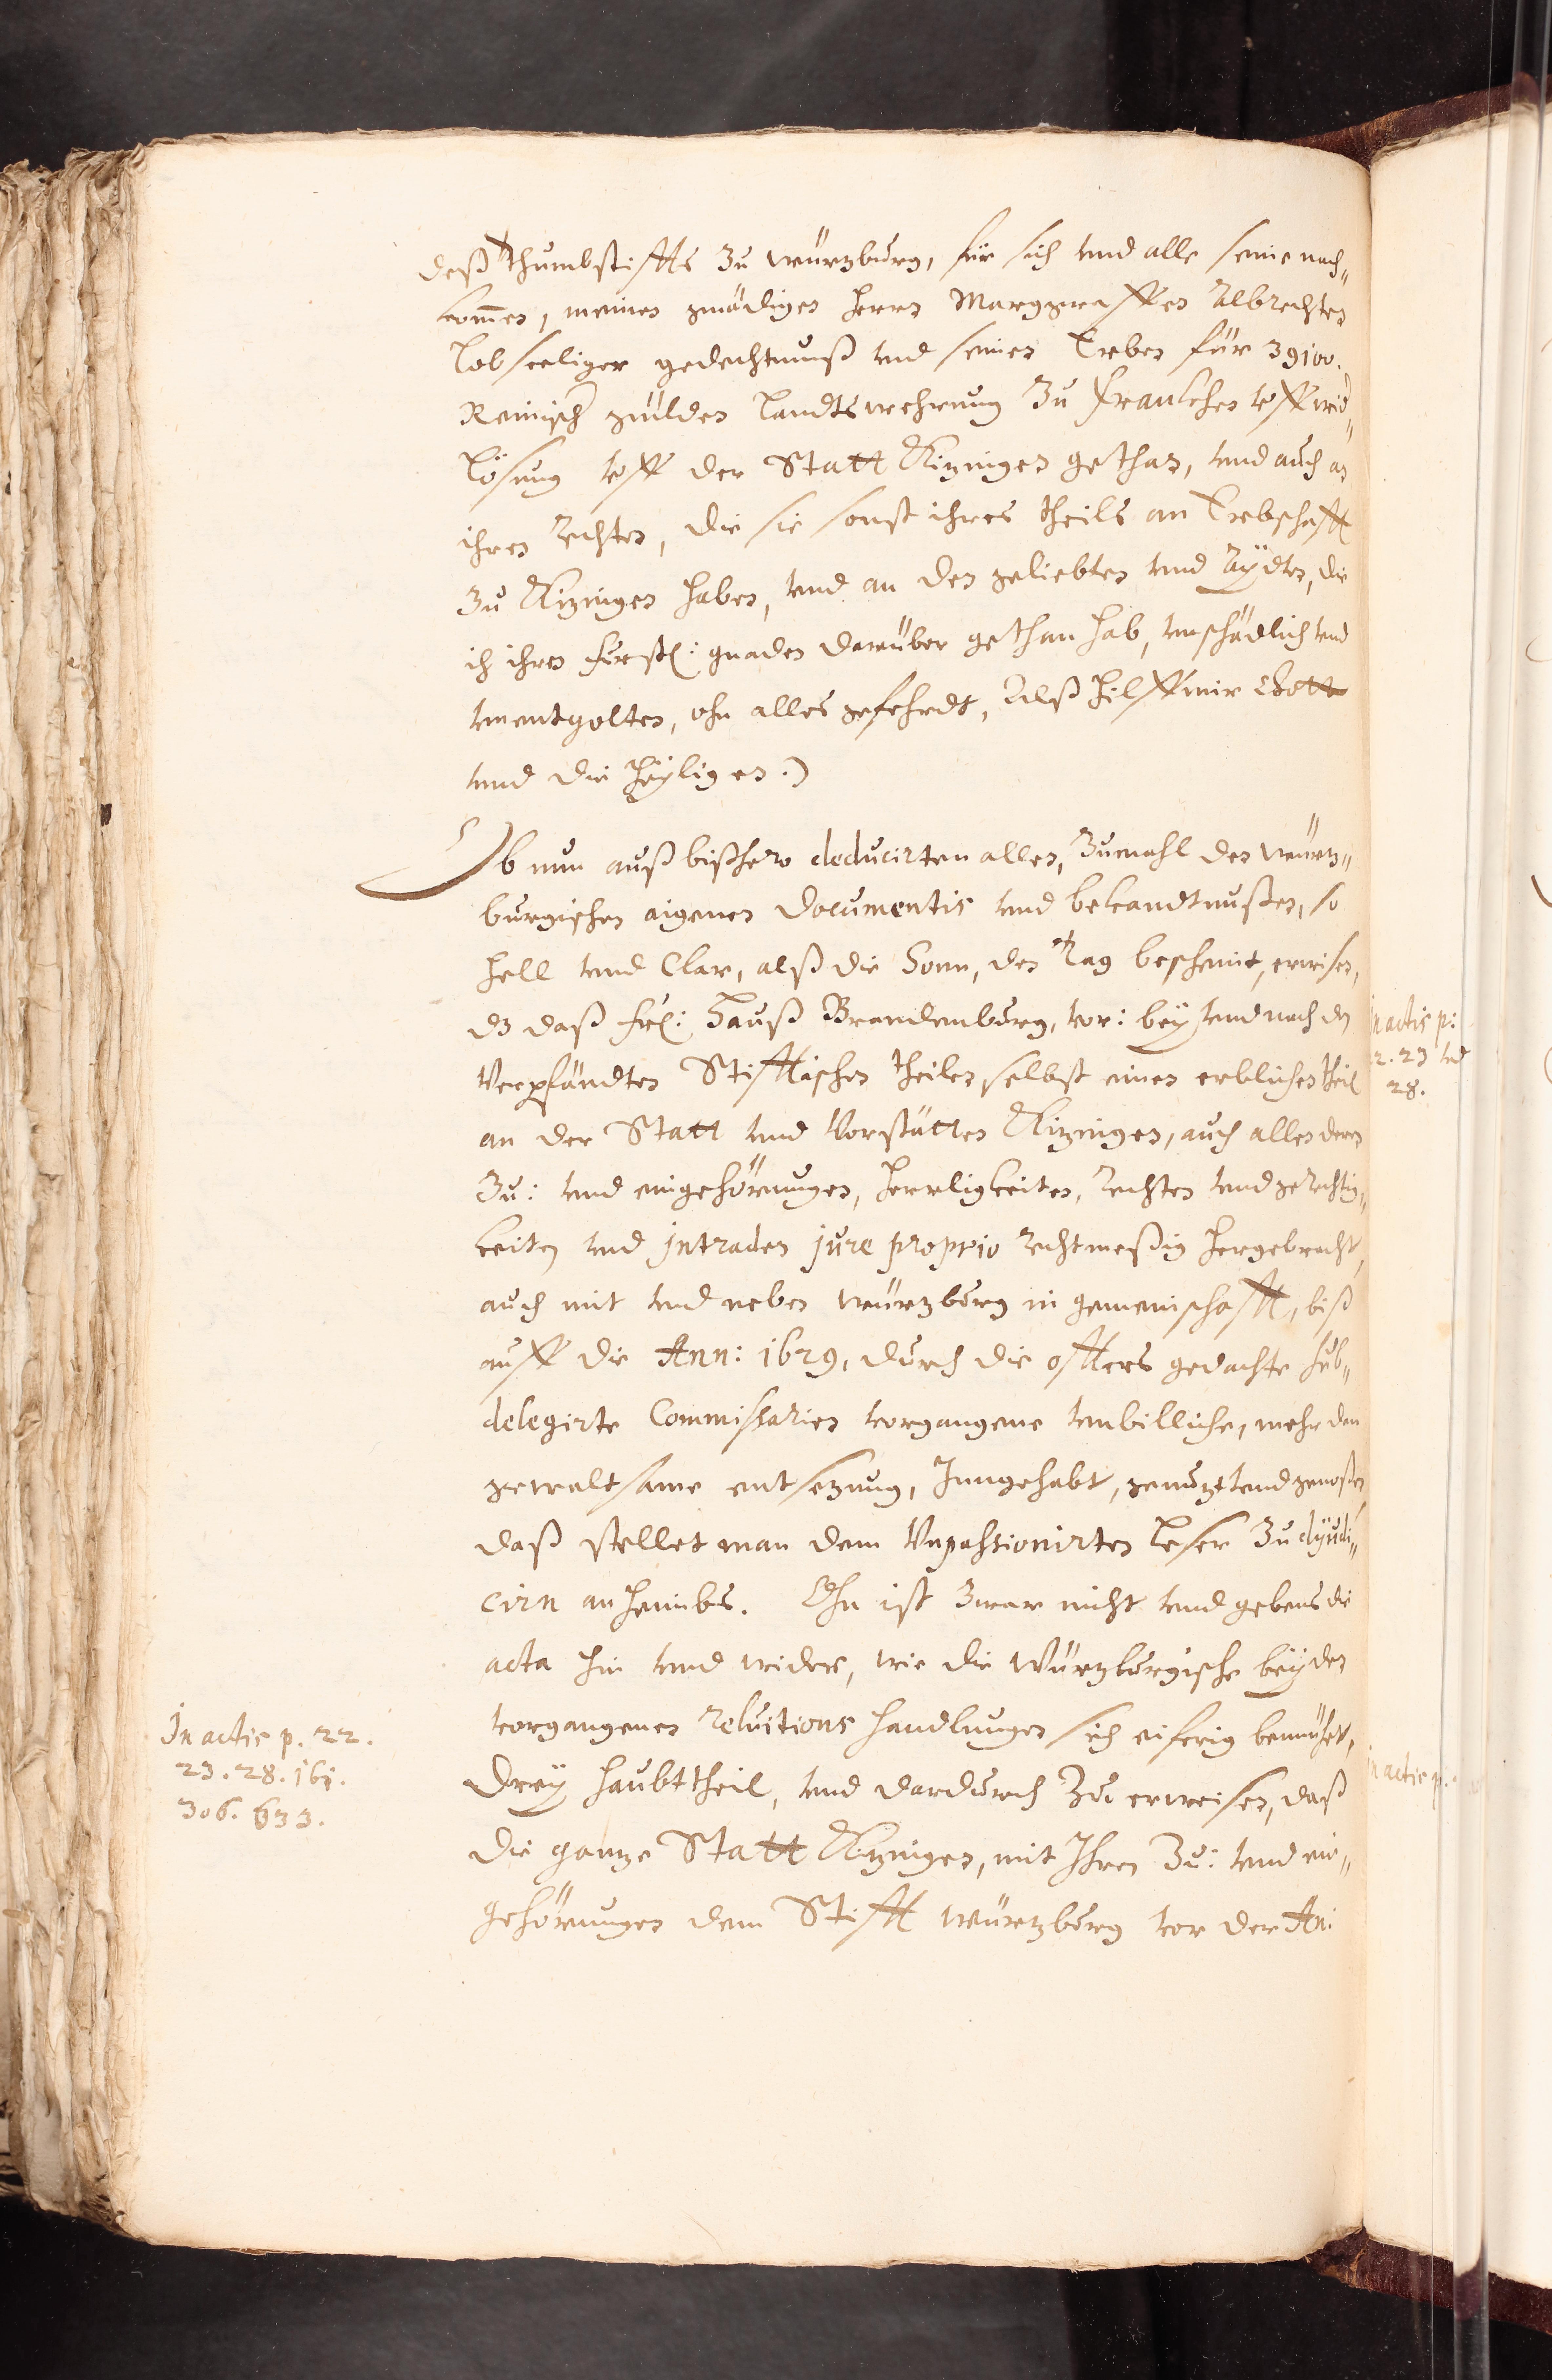 deß Thumbstiffts zu würzburg, für sich vnd alle seine nach„
komen, meinen gnädigen herrn Marggraffen Albrechten
Lobseeliger gedechtnuß vnd seinen Erben für 39100.
Reinisch gulden Landtswehrung zu Francken vff wid„
lösung vff der Statt Kizingen gethan, vnd auch an
ihren Rechten, die sie sonst ihres theils an Erbschafft
zu Kizingen haben, vnd an den geliebten vnd Aydten, die
ich ihren fürstl: gnaden darüber gethan hab, vnschädlich vnd
vnentgolten, ohn alles gefehrdt, Alß hilff mir Gott
vnd die Heyligen.)
Ob nun auß bißhero deducirten allen, zumahl den würtz„
burgischen aigenen Documentis vnd bekandtnußen, so
hell vnd Clar, alß die Sonn, den Tag bescheinit, erwisen,
dz daß frl: Hauß Brandenburg, vor: bey vnd nach dem
Verpfändten Stifftischen theilen selbst einen erblichen theil
an der Statt vnd Vorstätten Kizingen, auch allen deren
Zu: vnd eingehörungen, Herrligkeiten, Rechten vnd gerechtig„
keiten vnd jntraden jure proprio rechtmeßig hergebracht,
auch mit vnd neben würtzburg in gemeinschafft, biß
auff die Ann: 1629, durch die offters gedachte sub„
delegirte Commissarien vorgangene vnbilliche, mehr dan
gewaltsame entsezung, Inngehabt, genuzt vnd genoßen
daß stellet man dem Vnpassionirten Leser zu dijudi„
cirn anheimbs. Ohn ist zwar nicht vnd gebens die
acta hin vnd wider, wie die Würtzburgische bey den
vorgangenen reluitions handlungen sich eiferig bemühet,
Drey haubttheil, vnd dardurch zu erweisen, daß
die gantze Statt Kizingen, mit Ihren Zu: vnd ein„
gehörungen dem Stifft würtzburg vor der An:
In actis p. 22.
23. 28. 161.
306. 633.
In actis p:
22. 23 vnd
28.
In actis p.